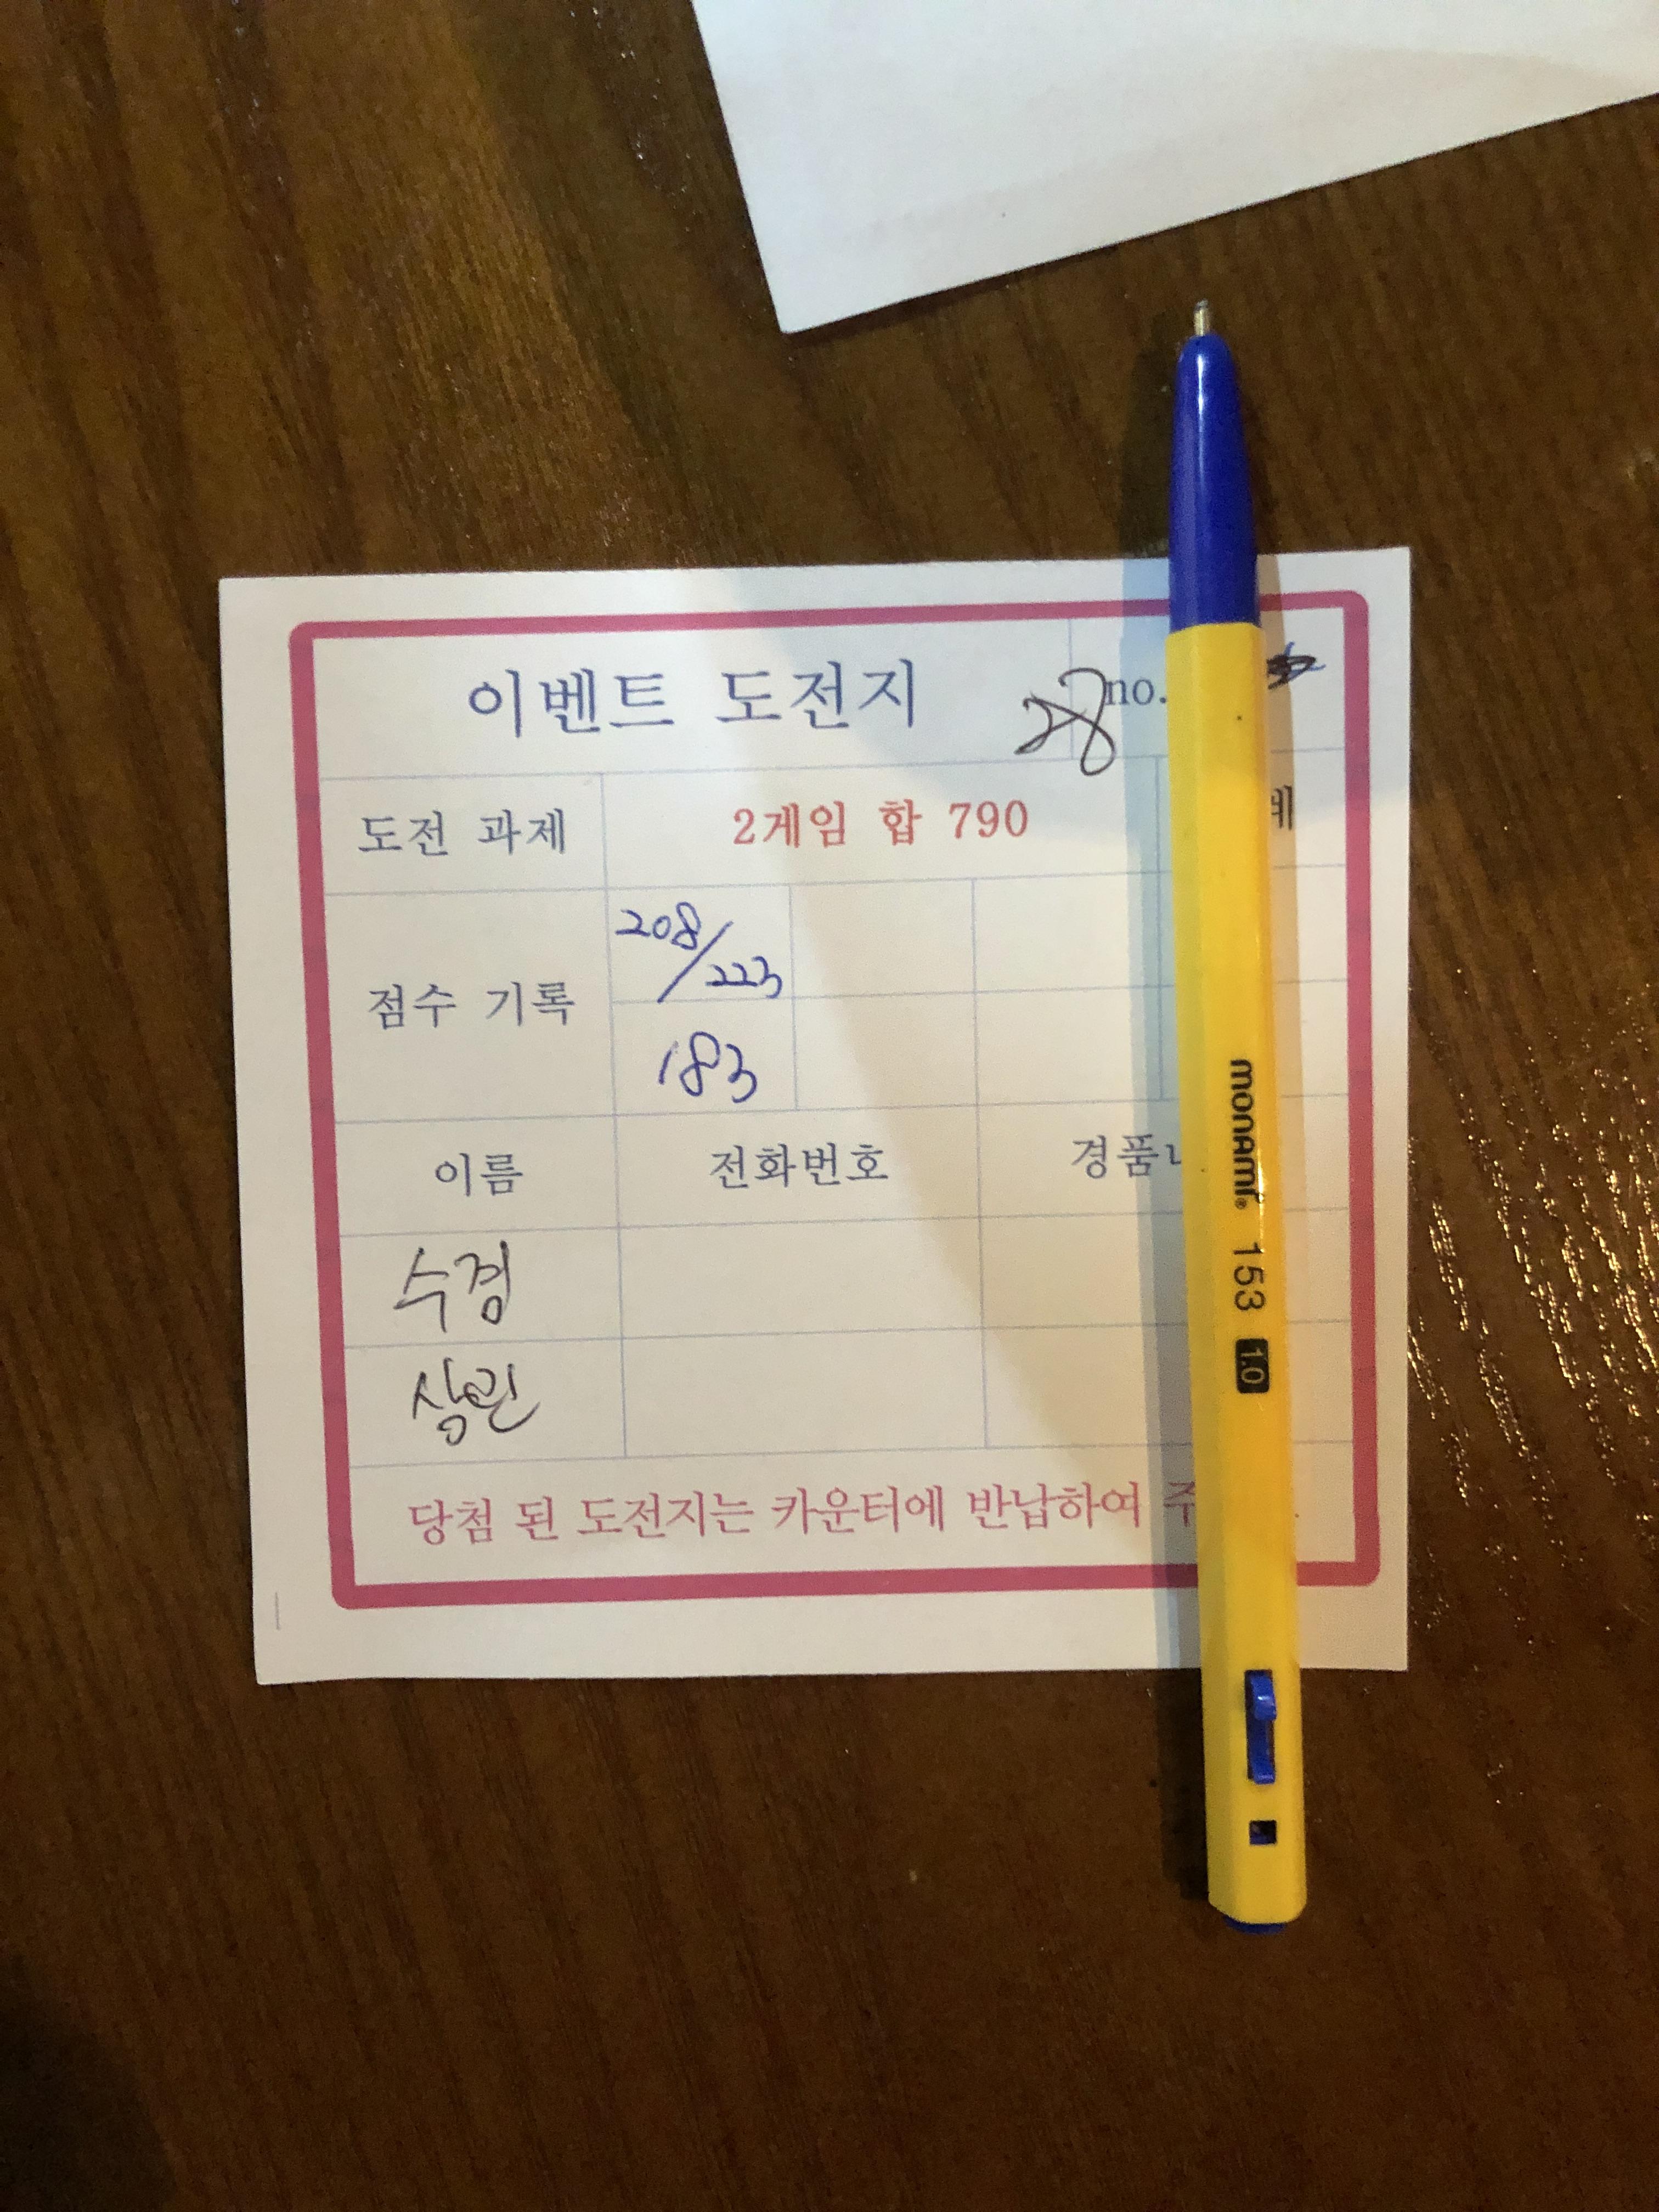 이벤트 도전지 28 no.
도전 과제 2게임 합 790
점수 기록
208/223
183
이름 전화번호 경품
수경
상린
당첨 된 도전지는 카운터에 반납하여
monami 153 1.0